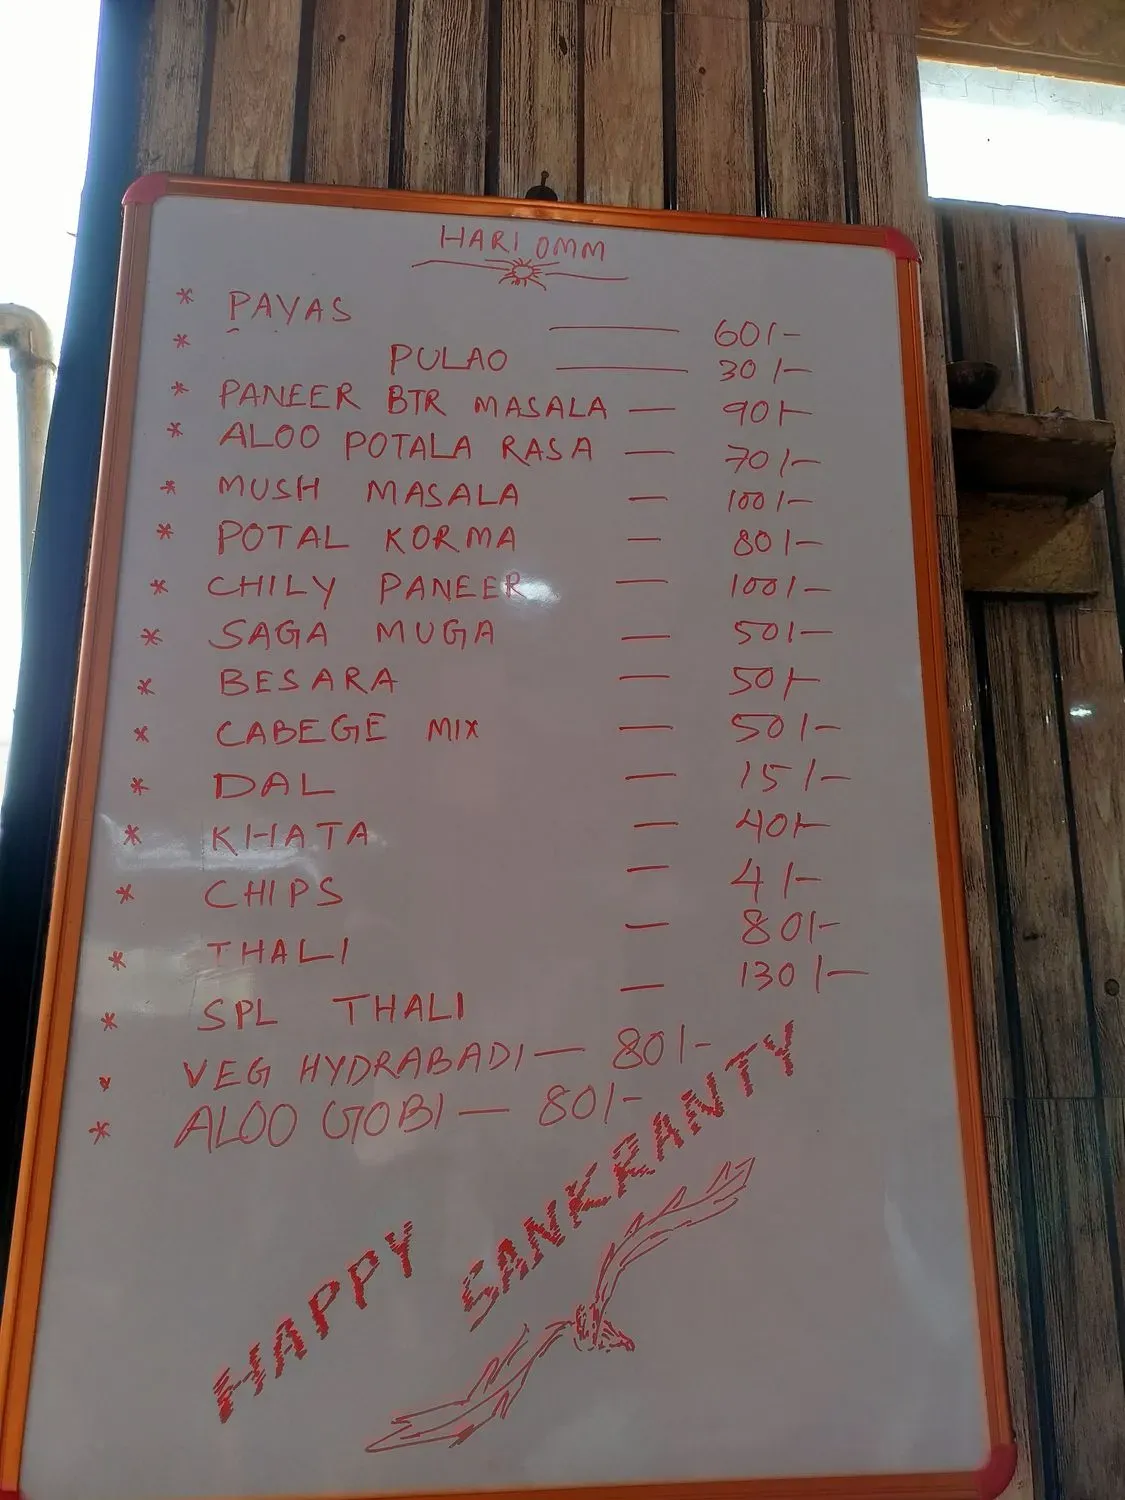 HARI OMM
* PAYAS — 60/-
* PULAO — 30/-
* PANEER BTR MASALA — 90/-
* ALOO POTALA RASA — 70/-
* MUSH MASALA — 100/-
* POTAL KORMA — 80/-
* CHILY PANEER — 100/-
* SAGA MUGA — 50/-
* BESARA — 50/-
* CABEGE MIX — 50/-
* DAL — 15/-
* KHATA — 40/-
* CHIPS — 4/-
* THALI — 80/-
* SPL THALI — 130/-
* VEG HYDRABADI — 80/-
* ALOO GOBI — 80/-
HAPPY SANKRANTY